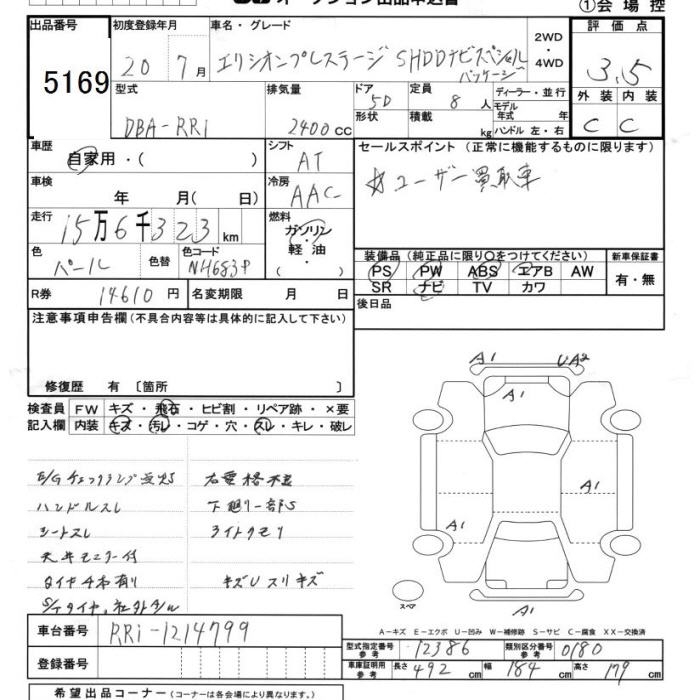 オークション出品申込書 ①会場控
出品番号 初度登録年月 車名・グレード 2WD 評価点
5169 20 7月 エリシオンプレステージ SHDDナビスペシャルパッケージ ・4WD 3.5
型式 排気量 ドア 定員 ディーラー・並行 外装 内装
DBA-RR1 2400cc 5D 8人 モデル年式 年式 C C
形状 積載 kg ハンドル 左・右
車歴 シフト セールスポイント (正常に機能するものに限ります)
自家用・( ) AT ☆ユーザー買取車
車検 冷房
年 月(日) AAC
走行 燃料
15万6千323km ガソリン・軽油( )
色 色替 色コード 装備品(純正品に限り○をつけてください) 新車保証書
パール NH683P PS PW ABS エアB AW 有・無
R券 14610円 名変期限 月 日 SR ナビ TV カワ
後日品
注意事項申告欄(不具合内容等は具体的に記入して下さい)
修復歴 有 〔箇所 〕
検査員 FW キズ・飛石・ヒビ割・リペア跡・×要
記入欄 内装 キズ・汚レ・コゲ・穴・スレ・キレ・破レ
A1 UA2
A1
A1
A1
A1
E/Gチェックランプ点灯
ハンドルスレ 下廻り一部S
シートスレ ライトクモリ
天井モニター付
タイヤ4本有り キズUスリキズ
スペア
A－キズ E－エクボ U－凹み W－補修跡 S－サビ C－腐食 XX－交換済
車台番号 RR1-1214799
登録番号
型式指定番号 参考 12386 類別区分番号 参考 0180
車庫証明用 参考 長さ 492cm 幅 184cm 高さ 179cm
希望出品コーナー(コーナーは各会場により異なります。)